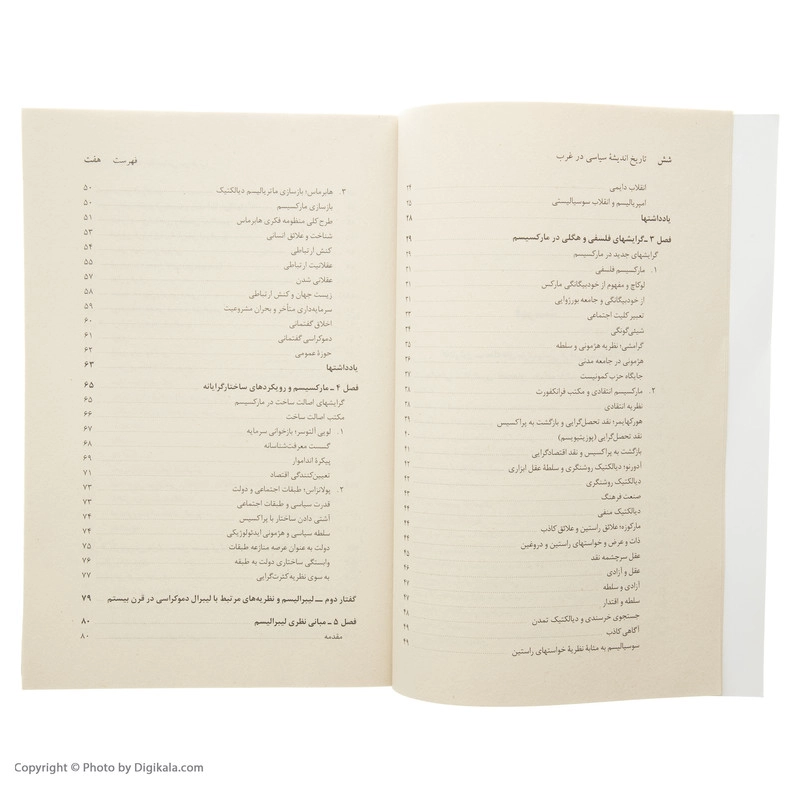 شش تاریخ اندیشهٔ سیاسی در غرب
انقلاب دایمی ۲۴
امپریالیسم و انقلاب سوسیالیستی ۲۵
یادداشتها ۲۸
فصل ۳ ـ گرایشهای فلسفی و هگلی در مارکسیسم ۲۹
گرایشهای جدید در مارکسیسم ۲۹
۱. مارکسیسم فلسفی ۳۱
لوکاچ و مفهوم از خودبیگانگی مارکس ۳۱
از خودبیگانگی و جامعه بورژوایی ۳۱
تعبیر کلیت اجتماعی ۳۳
شیئی‌گونگی ۳۴
گرامشی؛ نظریه هژمونی و سلطه ۳۵
هژمونی در جامعه مدنی ۳۶
جایگاه حزب کمونیست ۳۷
۲. مارکسیسم انتقادی و مکتب فرانکفورت ۳۸
نظریه انتقادی ۳۸
هورکهایمر؛ نقد تحصل‌گرایی و بازگشت به پراکسیس ۳۹
نقد تحصل‌گرایی (پوزیتیویسم) ۴۰
بازگشت به پراکسیس و نقد اقتصادگرایی ۴۱
آدورنو؛ دیالکتیک روشنگری و سلطهٔ عقل ابزاری ۴۲
دیالکتیک روشنگری ۴۲
صنعت فرهنگ ۴۳
دیالکتیک منفی ۴۴
مارکوزه؛ علائق راستین و علائق کاذب ۴۴
ذات و عرض و خواستهای راستین و دروغین ۴۴
عقل سرچشمه نقد ۴۵
عقل و آزادی ۴۶
آزادی و سلطه ۴۶
سلطه و اقتدار ۴۷
جستجوی خرسندی و دیالکتیک تمدن ۴۸
آگاهی کاذب ۴۸
سوسیالیسم به مثابهٔ نظریهٔ خواستهای راستین ۴۹
فهرست هفت
۳. هابرماس؛ بازسازی ماتریالیسم دیالکتیک ۵۰
بازسازی مارکسیسم ۵۰
طرح کلی منظومه فکری هابرماس ۵۱
شناخت و علائق انسانی ۵۳
کنش ارتباطی ۵۴
عقلانیت ارتباطی ۵۵
عقلانی شدن ۵۷
زیست جهان و کنش ارتباطی ۵۸
سرمایه‌داری متأخر و بحران مشروعیت ۵۹
اخلاق گفتمانی ۶۰
دموکراسی گفتمانی ۶۱
حوزهٔ عمومی ۶۲
یادداشتها ۶۳
فصل ۴ ـ مارکسیسم و رویکردهای ساختارگرایانه ۶۵
گرایشهای اصالت ساخت در مارکسیسم ۶۵
مکتب اصالت ساخت ۶۶
۱. لویی آلتوسر؛ بازخوانی سرمایه ۶۷
گسست معرفت‌شناسانه ۶۸
پیکرهٔ انداموار ۶۹
تعیین‌کنندگی اقتصاد ۷۱
۲. پولانزاس؛ طبقات اجتماعی و دولت ۷۳
قدرت سیاسی و طبقات اجتماعی ۷۳
آشتی دادن ساختار با پراکسیس ۷۴
سلطه سیاسی و هژمونی ایدئولوژیکی ۷۴
دولت به عنوان عرصه منازعه طبقات ۷۵
وابستگی ساختاری دولت به طبقه ۷۶
به سوی نظریه کثرت‌گرایی ۷۷
گفتار دوم ـــ لیبرالیسم و نظریه‌های مرتبط با لیبرال دموکراسی در قرن بیستم ۷۹
فصل ۵ ـ مبانی نظری لیبرالیسم ۸۰
مقدمه ۸۰
Copyright © Photo by Digikala.com